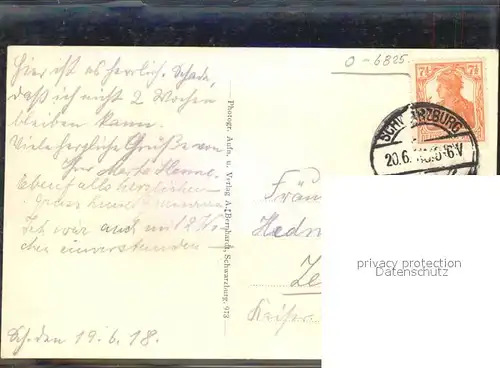 O-6825
Hier ist es herrlich. Schade,
daß ich nicht 2 Wochen
bleiben kann.
Viele herzliche Grüße von
Ihrer Marta Henne.
Ebenfalls herzlichen
Gruss
wär auch mit 2 Wo-
chen einverstanden.
Sch. den 19.6.18.
Photogr. Aufn. u. Verlag A. Bernhardt, Schwarzburg. 918
7½ 7½
SCHWARZBURG
20.6. 5-6V
Frä
Hedw
Ze
Kaiser
privacy protection
Datenschutz